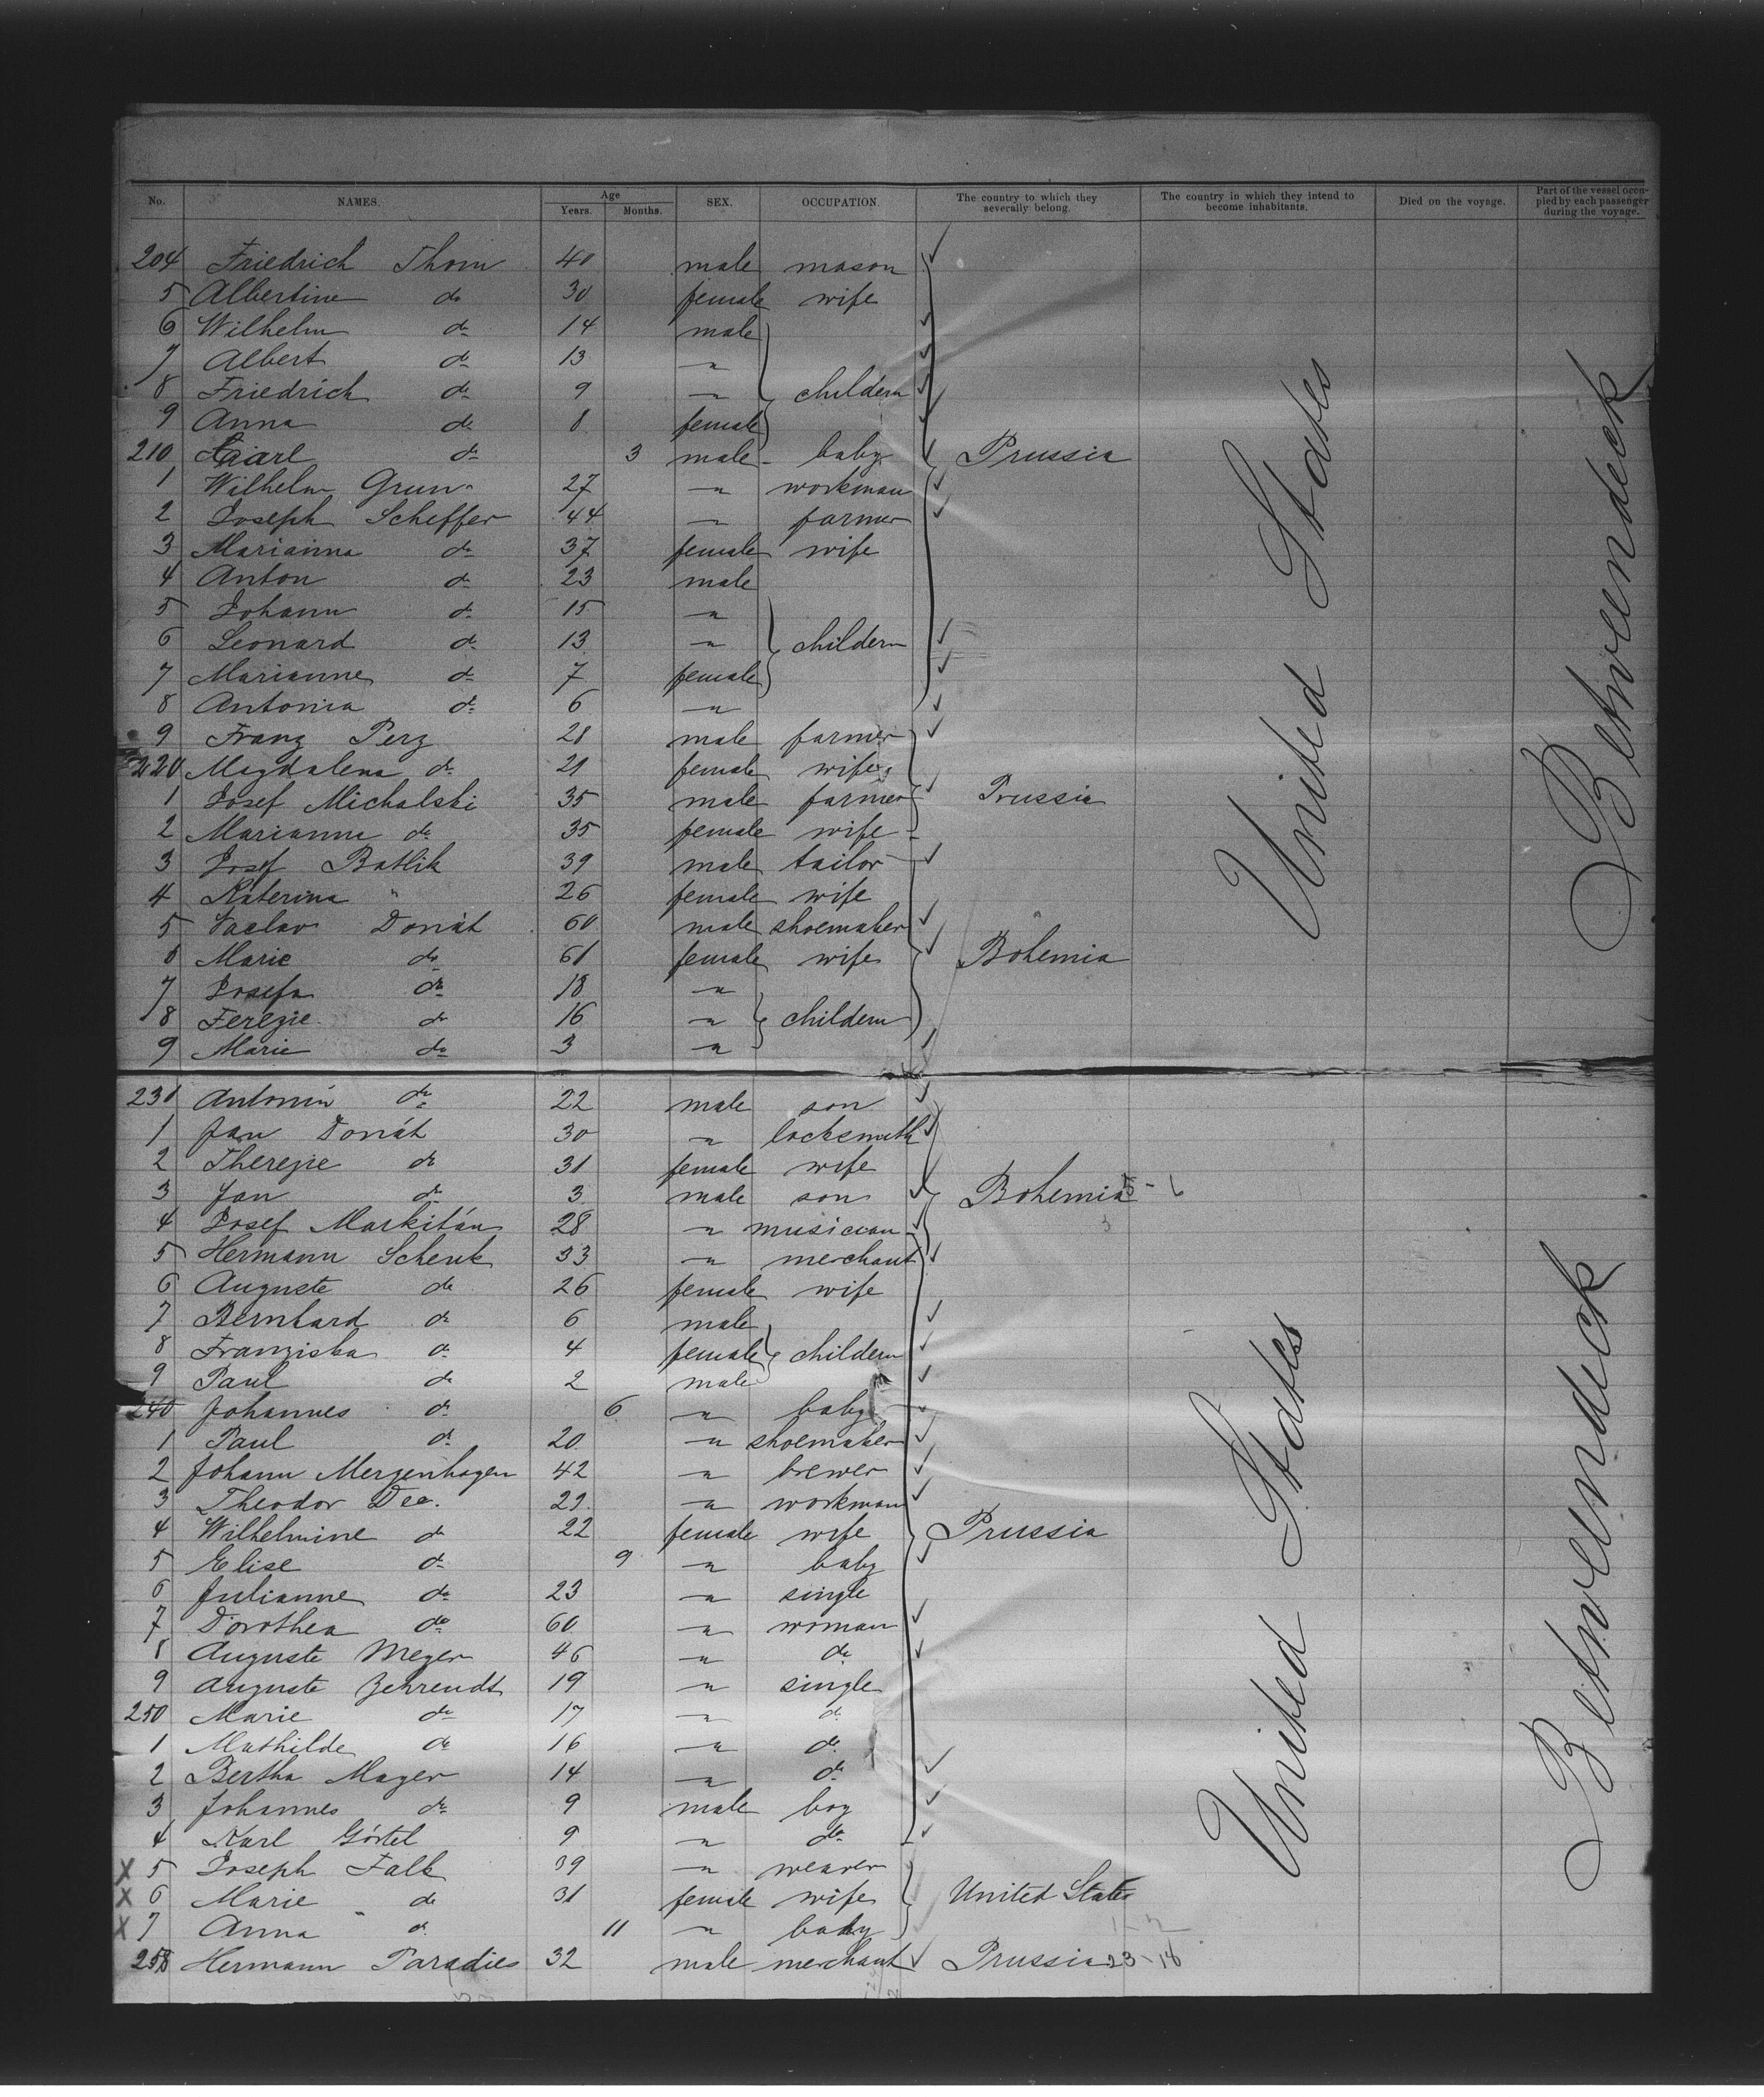 No. NAMES. Age Years. Months. SEX. OCCUPATION. The country to which they severally belong. The country in which they intend to become inhabitants. Died on the voyage. Part of the vessel occupied by each passenger during the voyage.
204 Friedrich Thom 40 male mason
5 Albertine do 30 female wife
6 Wilhelm do 14 male
7 Albert do 13 "
8 Friedrich do 9 " childern
9 Anna do 8 female
210 Carl do 3 male baby Prussia
1 Wilhelm Grun 27 " workman
2 Joseph Scheffer 44 " farmer
3 Marianna do 37 female wife
4 Anton do 23 male
5 Johann do 15 "
6 Leonard do 13 " childern
7 Marianne do 7 female
8 Antonia do 6 "
9 Franz Perz 28 male farmer
220 Magdalena do 21 female wife
1 Josef Michalski 35 male farmer Prussia
2 Marianna do 35 female wife
3 Josef Batlik 39 male tailor
4 Katerina " 26 female wife
5 Vaclav Donát 60 male shoemaker
6 Marie do 61 female wife Bohemia
7 Josefa do 18 "
8 Terezie do 16 " childern
9 Marie do 3 "
United States
Betweendeck
230 Antonin do 22 male son
1 Jan Donát 30 " locksmith
2 Therezie do 31 female wife
3 Jan do 3 male son Bohemia
4 Josef Markitán 28 " musician
5 Hermann Schenk 33 " merchant
6 Auguste do 26 female wife
7 Bernhard do 6 male
8 Franziska do 4 female childern
9 Paul do 2 male
240 Johannes do 6 " baby
1 Paul do 20 " shoemaker
2 Johann Mergenhagen 42 " brewer
3 Theodor Dee. 29 " workman
4 Wilhelmine do 22 female wife Prussia
5 Elise do 9 " baby
6 Julianne do 23 " single
7 Dorothea do 60 " woman
8 Auguste Meyer 46 " do
9 Auguste Zehrendt 19 " single
250 Marie do 17 " do
1 Mathilde do 16 " do
2 Bertha Mayer 14 " do
3 Johannes do 9 male boy
4 Karl Görtel 9 " do
X 5 Joseph Falk 39 " weaver
X 6 Marie do 31 female wife United States
X 7 Anna do 11 " baby
258 Hermann Paradies 32 male merchant Prussia 23-18
United States
Betweendeck